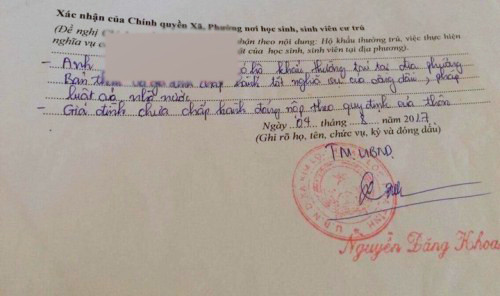 Xác nhận của Chính quyền Xã, Phường nơi học sinh, sinh viên cư trú
(Đề nghị nhận theo nội dung: Hộ khẩu thường trú, việc thực hiện
nghĩa vụ c của học sinh, sinh viên tại địa phương).
- Anh có hộ khẩu thường trú tại địa phương
Bản thân và gia đình chấp hành tốt nghĩa vụ của công dân, pháp
luật của nhà nước
- Gia đình chưa chấp hành đóng nộp theo quy định của thôn
Ngày 04 tháng 8 năm 2017
(Ghi rõ họ, tên, chức vụ, ký và đóng dấu)
TM. UBND
Nguyễn Đăng Khoa